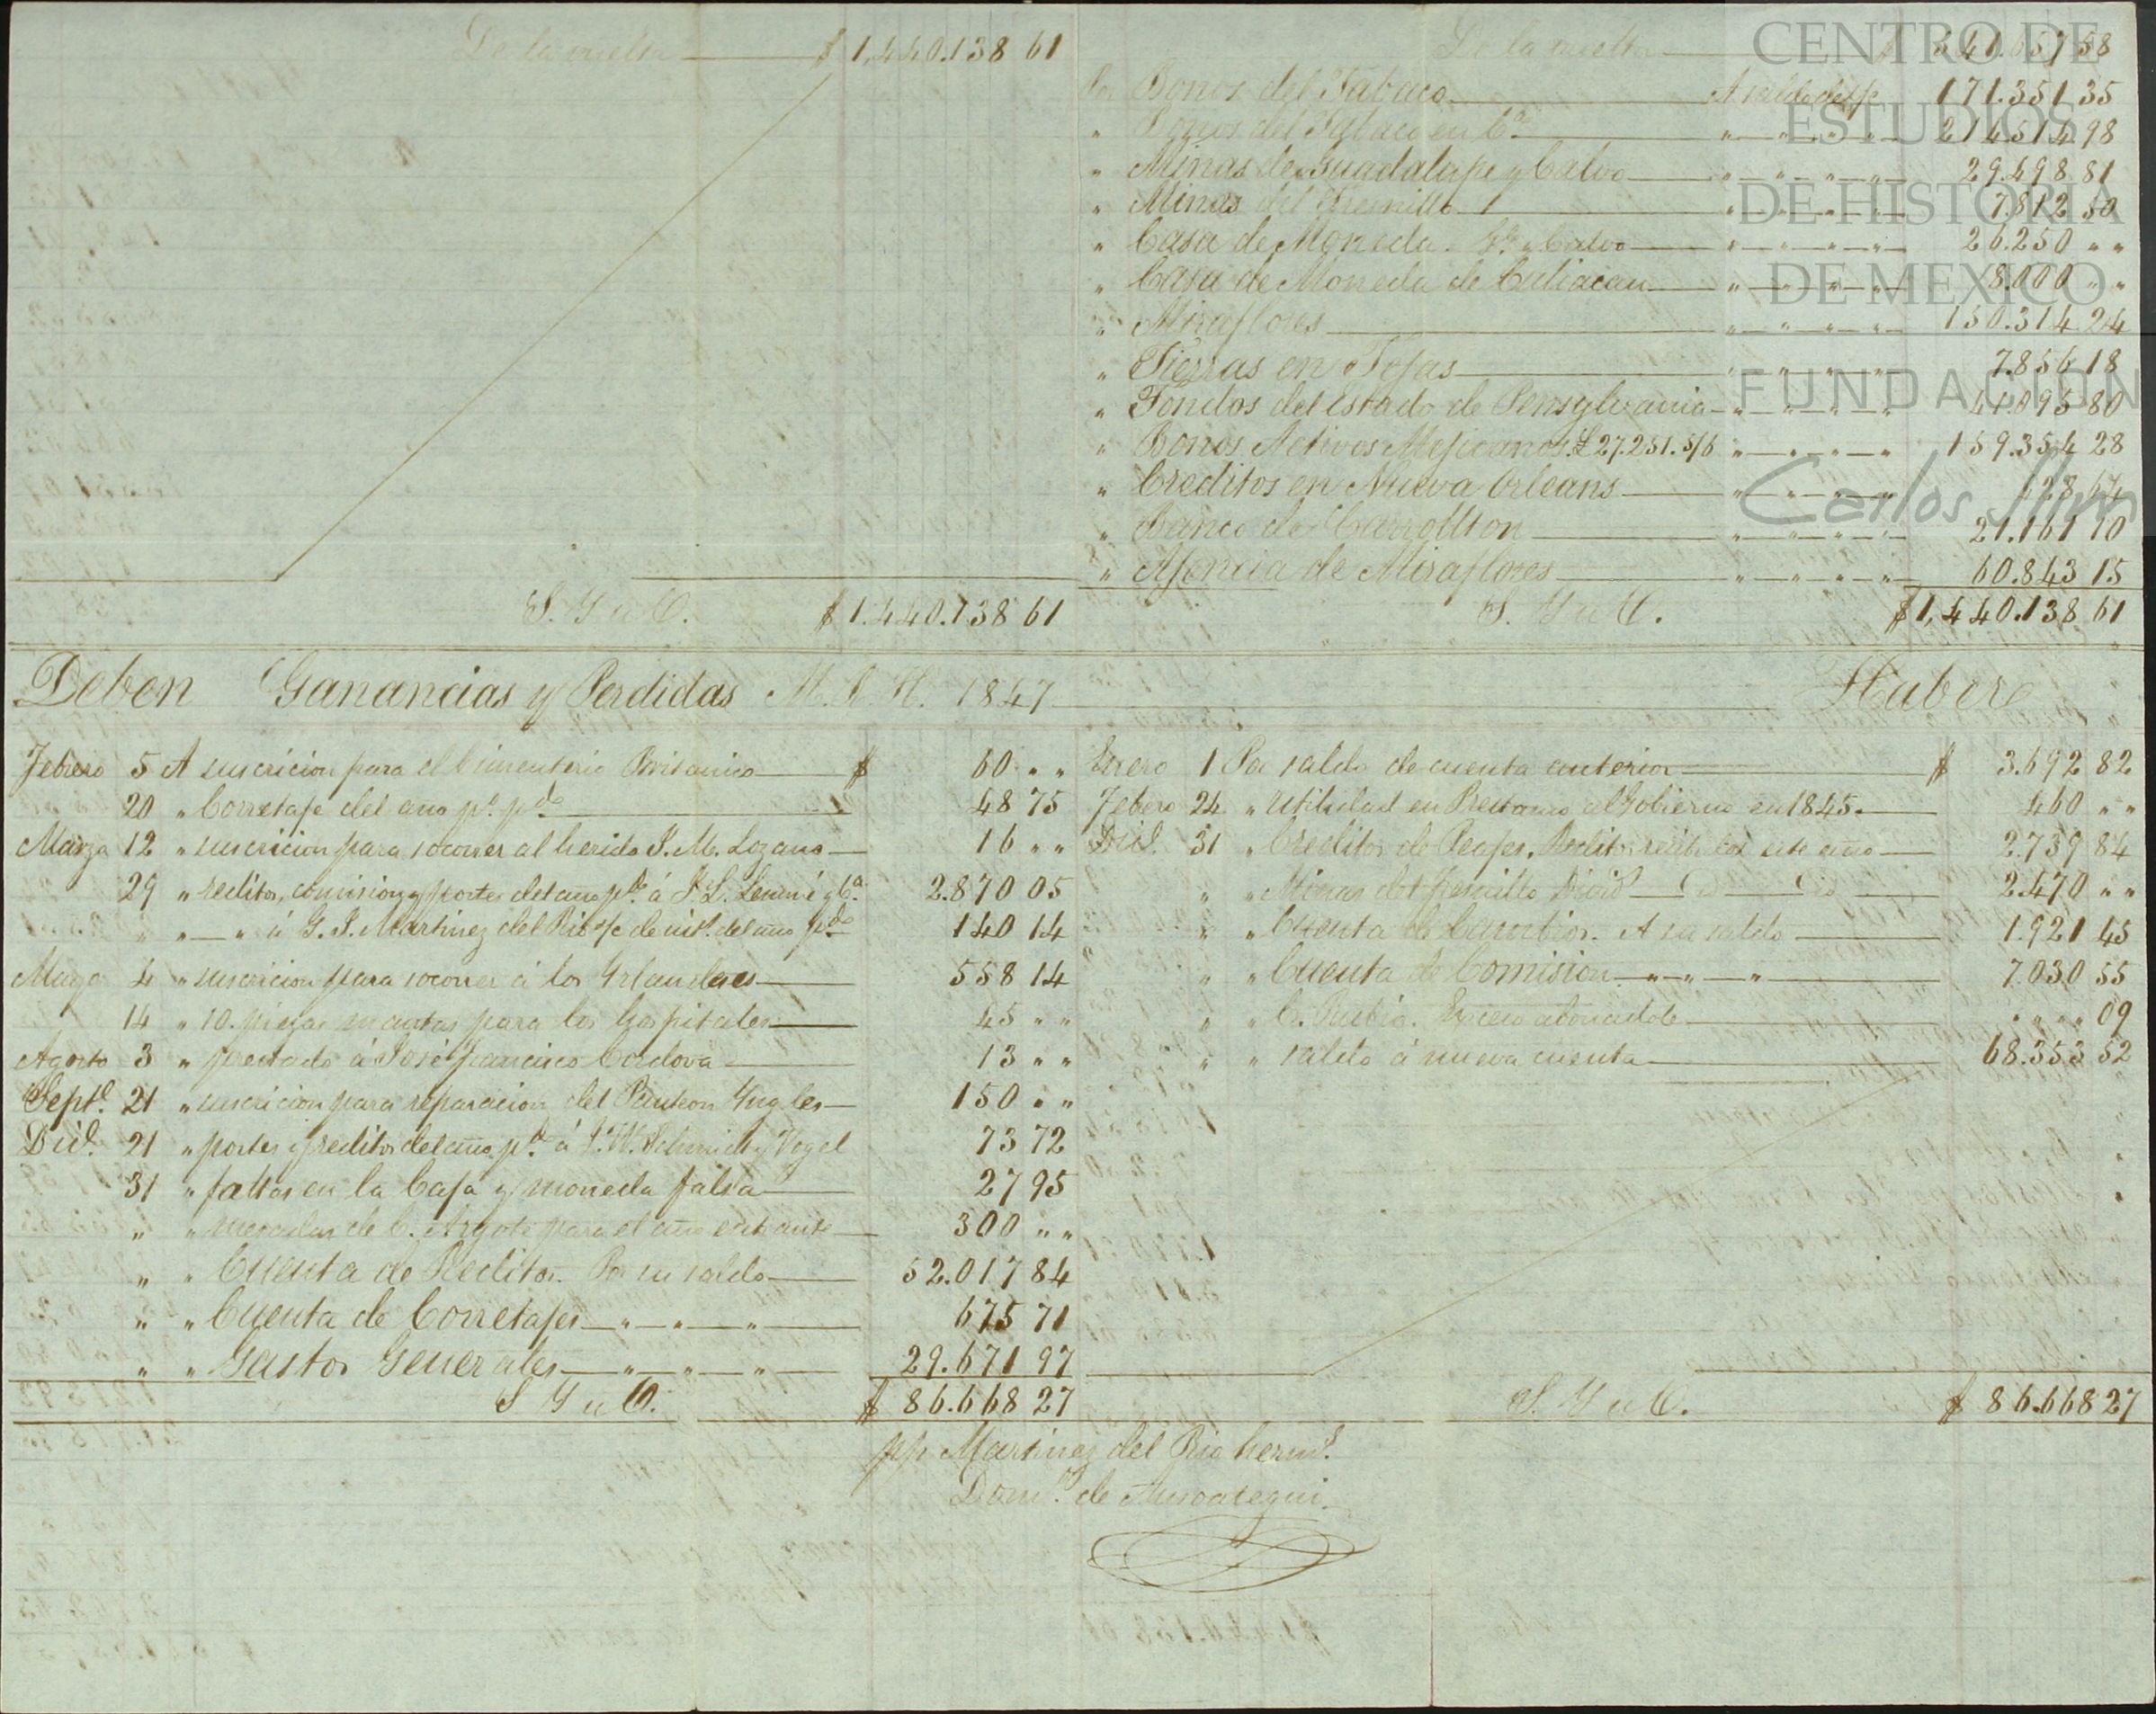 De la vuelta $ 1,440.138 61
De la vuelta $ 541.657 58
Por Bonos del Tabaco A saldo de 171.351 35
" Bonos del Tabaco en Ca. " " " " 214.514 98
" Minas de Guadalupe y Calvo " " " " 29.498 81
" Minas del Fresnillo 1 " " " " 7.812 50
" Casa de Moneda. Gpe. y Calvo " " " " 26.250 " "
" Casa de Moneda de Culiacan " " " " 8.000 " "
" Miraflores " " " " 150.314 24
" Tierras en Tejas " " " " 7.856 18
" Fondos del Estado de Pensylvania " " " " 41.095 80
" Bonos Activos Mejicanos £27.251.5/6 " " " " 159.354 28
" Creditos en Nueva Orleans " " " " 428 64
" Banco de Carrollton " " " " 21.161 10
" Agencia de Miraflores " " " " 60.843 15
S. Y u O. $ 1.440.138 61
S. Y u O. $ 1,440.138 61
CENTRO DE
ESTUDIOS
DE HISTORIA
DE MEXICO
FUNDACIÓN
Carlos Slim
Deben Ganancias y Perdidas M. R. H. 1847
Haber
Febrero 5 A suscricion para el Cimenterio Britanico $ 60 " "
20 " Corretaje del año po. pdo. 48 75
Marzo 12 " suscricion para socorrer al herido J. M. Lozano 16 " "
29 " reditos, comision y portes del año pdo. á F. L. Lemmé y Ca. 2.870 05
" " " á G. J. Martinez del Rio del año pdo. 140 14
Mayo 4 " suscricion para socorrer á los Yrlandeses 558 14
14 " 10. piezas mantas para los Hospitales 45 " "
Agosto 3 " prestado á José Francisco Cordova 13 " "
Septe. 21 " suscricion para reparacion del Panteon Yngles 150 " "
Dice. 21 " portes y reditos del año pdo. á Schmidt y Vogel 73 72
31 " faltas en la Caja y moneda falsa 27 95
" " mesadas de C. Argote para el año entrante 300 " "
" " Cuenta de Reditos. Por su saldo 52.017 84
" " Cuenta de Corretajes " " " 675 71
" " Gastos Generales " " " 29.671 97
S Y u O. $ 86.668 27
Enero 1 Por saldo de cuenta anterior $ 3.692 82
Febero 24 " Utilidad en Prestamo al Gobierno en 1845. 460 " "
Dice. 31 " Creditos de Peajes. Reditos recibidos este año 2.739 84
" " Minas del Fresnillo Divids. 2.470 " "
" " Cuenta de Cambios. A su saldo 1.921 45
" " Cuenta de Comision " " " 7.030 55
" " C. Rubio. 09
" " saldo á nueva cuenta 68.353 52
S. Y u O. $ 86.668 27
pp Martinez del Rio hermos.
Domo. de Amoategui